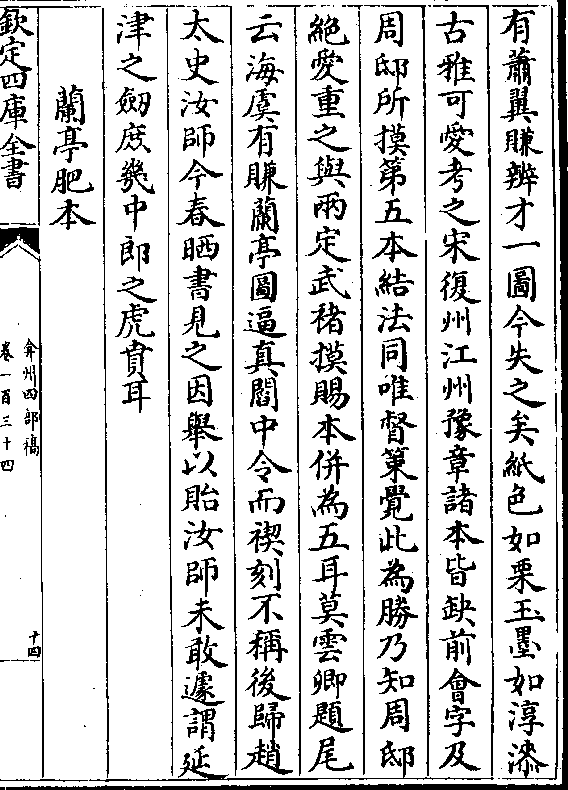 有蕭翼賺辨才一圖今失之矣紙色如栗玉墨如淳漆
古雅可愛考之宋復州江州豫章諸本皆缺前會字及
周邸所摸第五本結法同唯督策覺此為勝乃知周邸
絕愛重之與兩定武褚摸賜本併為五耳莫雲卿題尾
云海虞有賺蘭亭圖逼真閻中令而禊刻不稱後歸趙
太史汝師今春晒書見之因舉以貽汝師未敢遽謂延
津之劒庶幾中郎之虎賁耳
蘭亭肥本
欽定四庫全書
弇州四部稿
卷一百三十四
十四